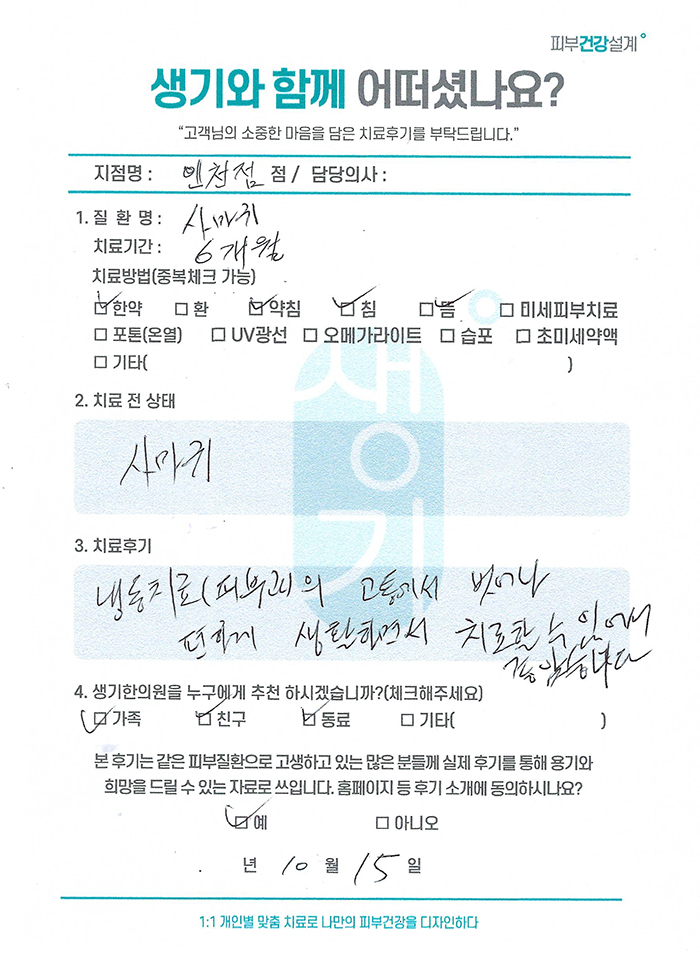 피부건강설계
생기와 함께 어떠셨나요?
“고객님의 소중한 마음을 담은 치료후기를 부탁드립니다.”
지점명 : 인천점 점 / 담당의사 :
1. 질 환 명 : 사마귀
치료기간 : 6개월
치료방법(중복체크 가능)
한약 환 약침 침 뜸 미세피부치료
포톤(온열) UV광선 오메가라이트 습포 초미세약액
기타( )
2. 치료 전 상태
사마귀
3. 치료후기
냉동치료(피부과)의 고통에서 벗어나
편하게 생활하면서 치료할 수 있어서
좋았습니다
4. 생기한의원을 누구에게 추천 하시겠습니까?(체크해주세요)
가족 친구 동료 기타( )
본 후기는 같은 피부질환으로 고생하고 있는 많은 분들께 실제 후기를 통해 용기와
희망을 드릴 수 있는 자료로 쓰입니다. 홈페이지 등 후기 소개에 동의하시나요?
예 아니오
년 10 월 15 일
1:1 개인별 맞춤 치료로 나만의 피부건강을 디자인하다
생기